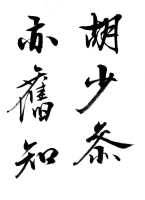 胡少恭
亦舊知